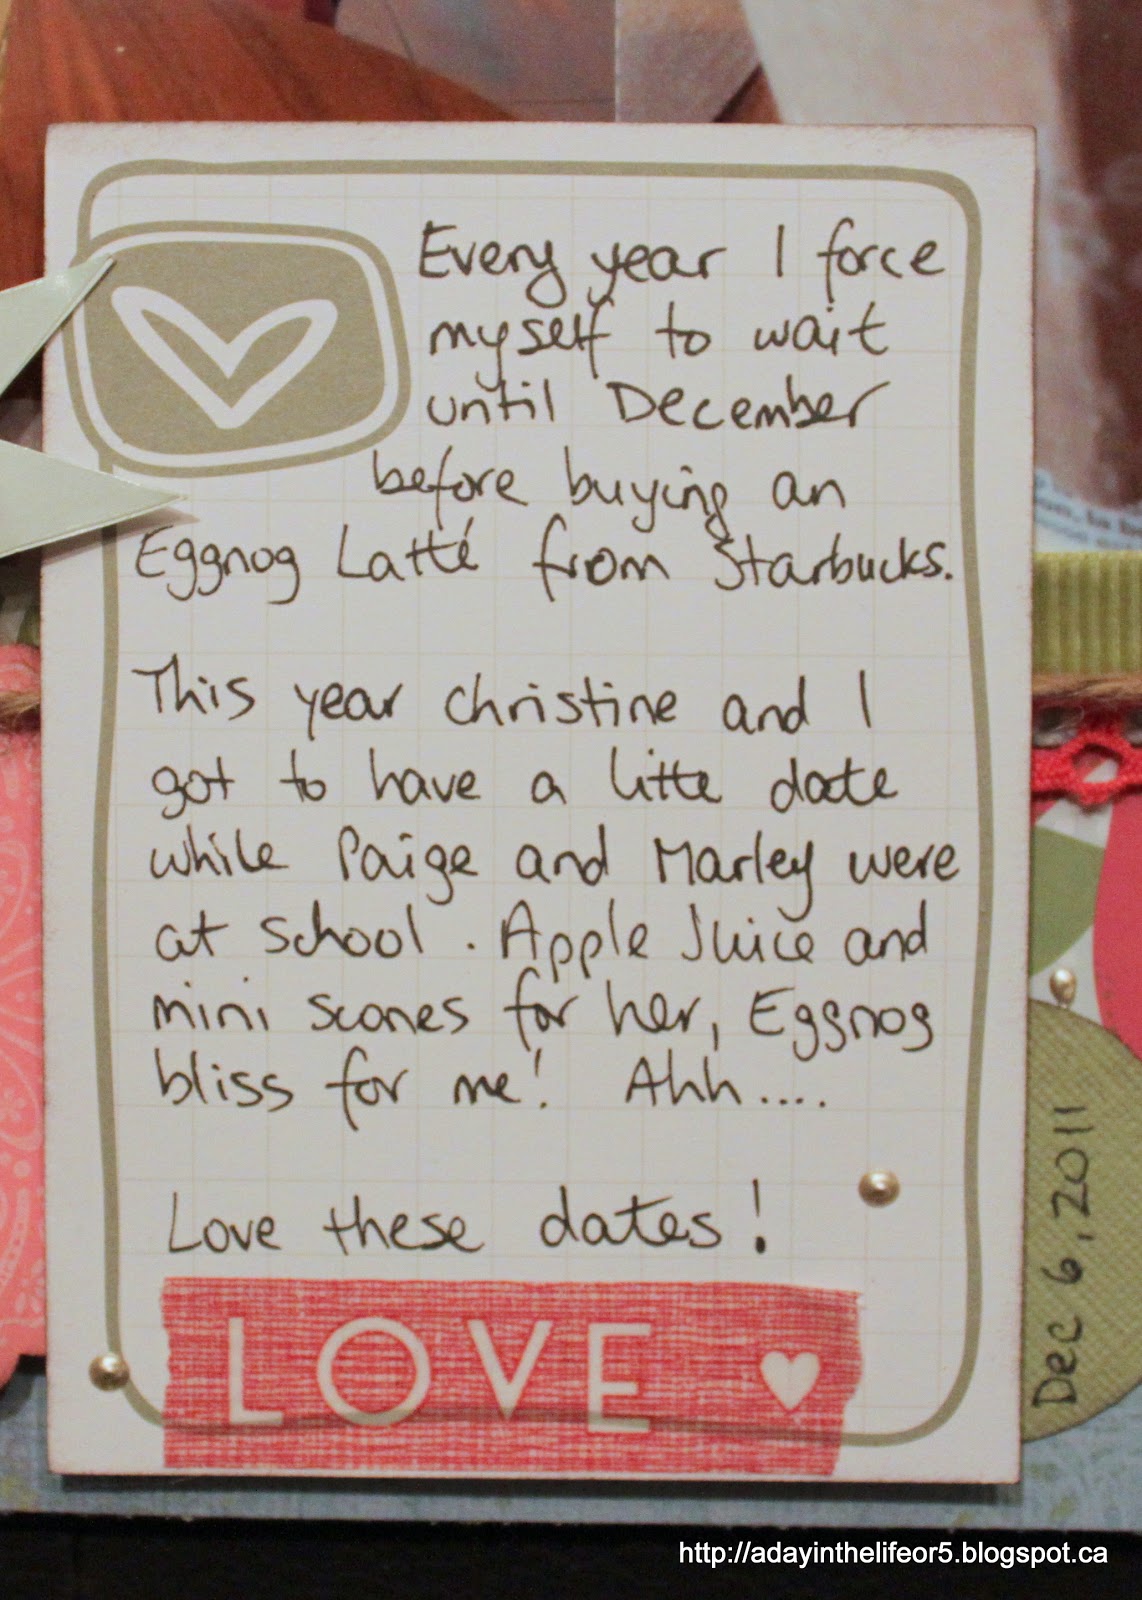 Every year I force
myself to wait
until December
before buying an
Eggnog Latté from Starbucks.
This year Christine and I
got to have a little date
while Paige and Marley were
at school. Apple Juice and
mini scones for her, Eggnog
bliss for me! Ahh....
Love these dates!
LOVE
Dec 6, 2011
http://adayinthelifeor5.blogspot.ca